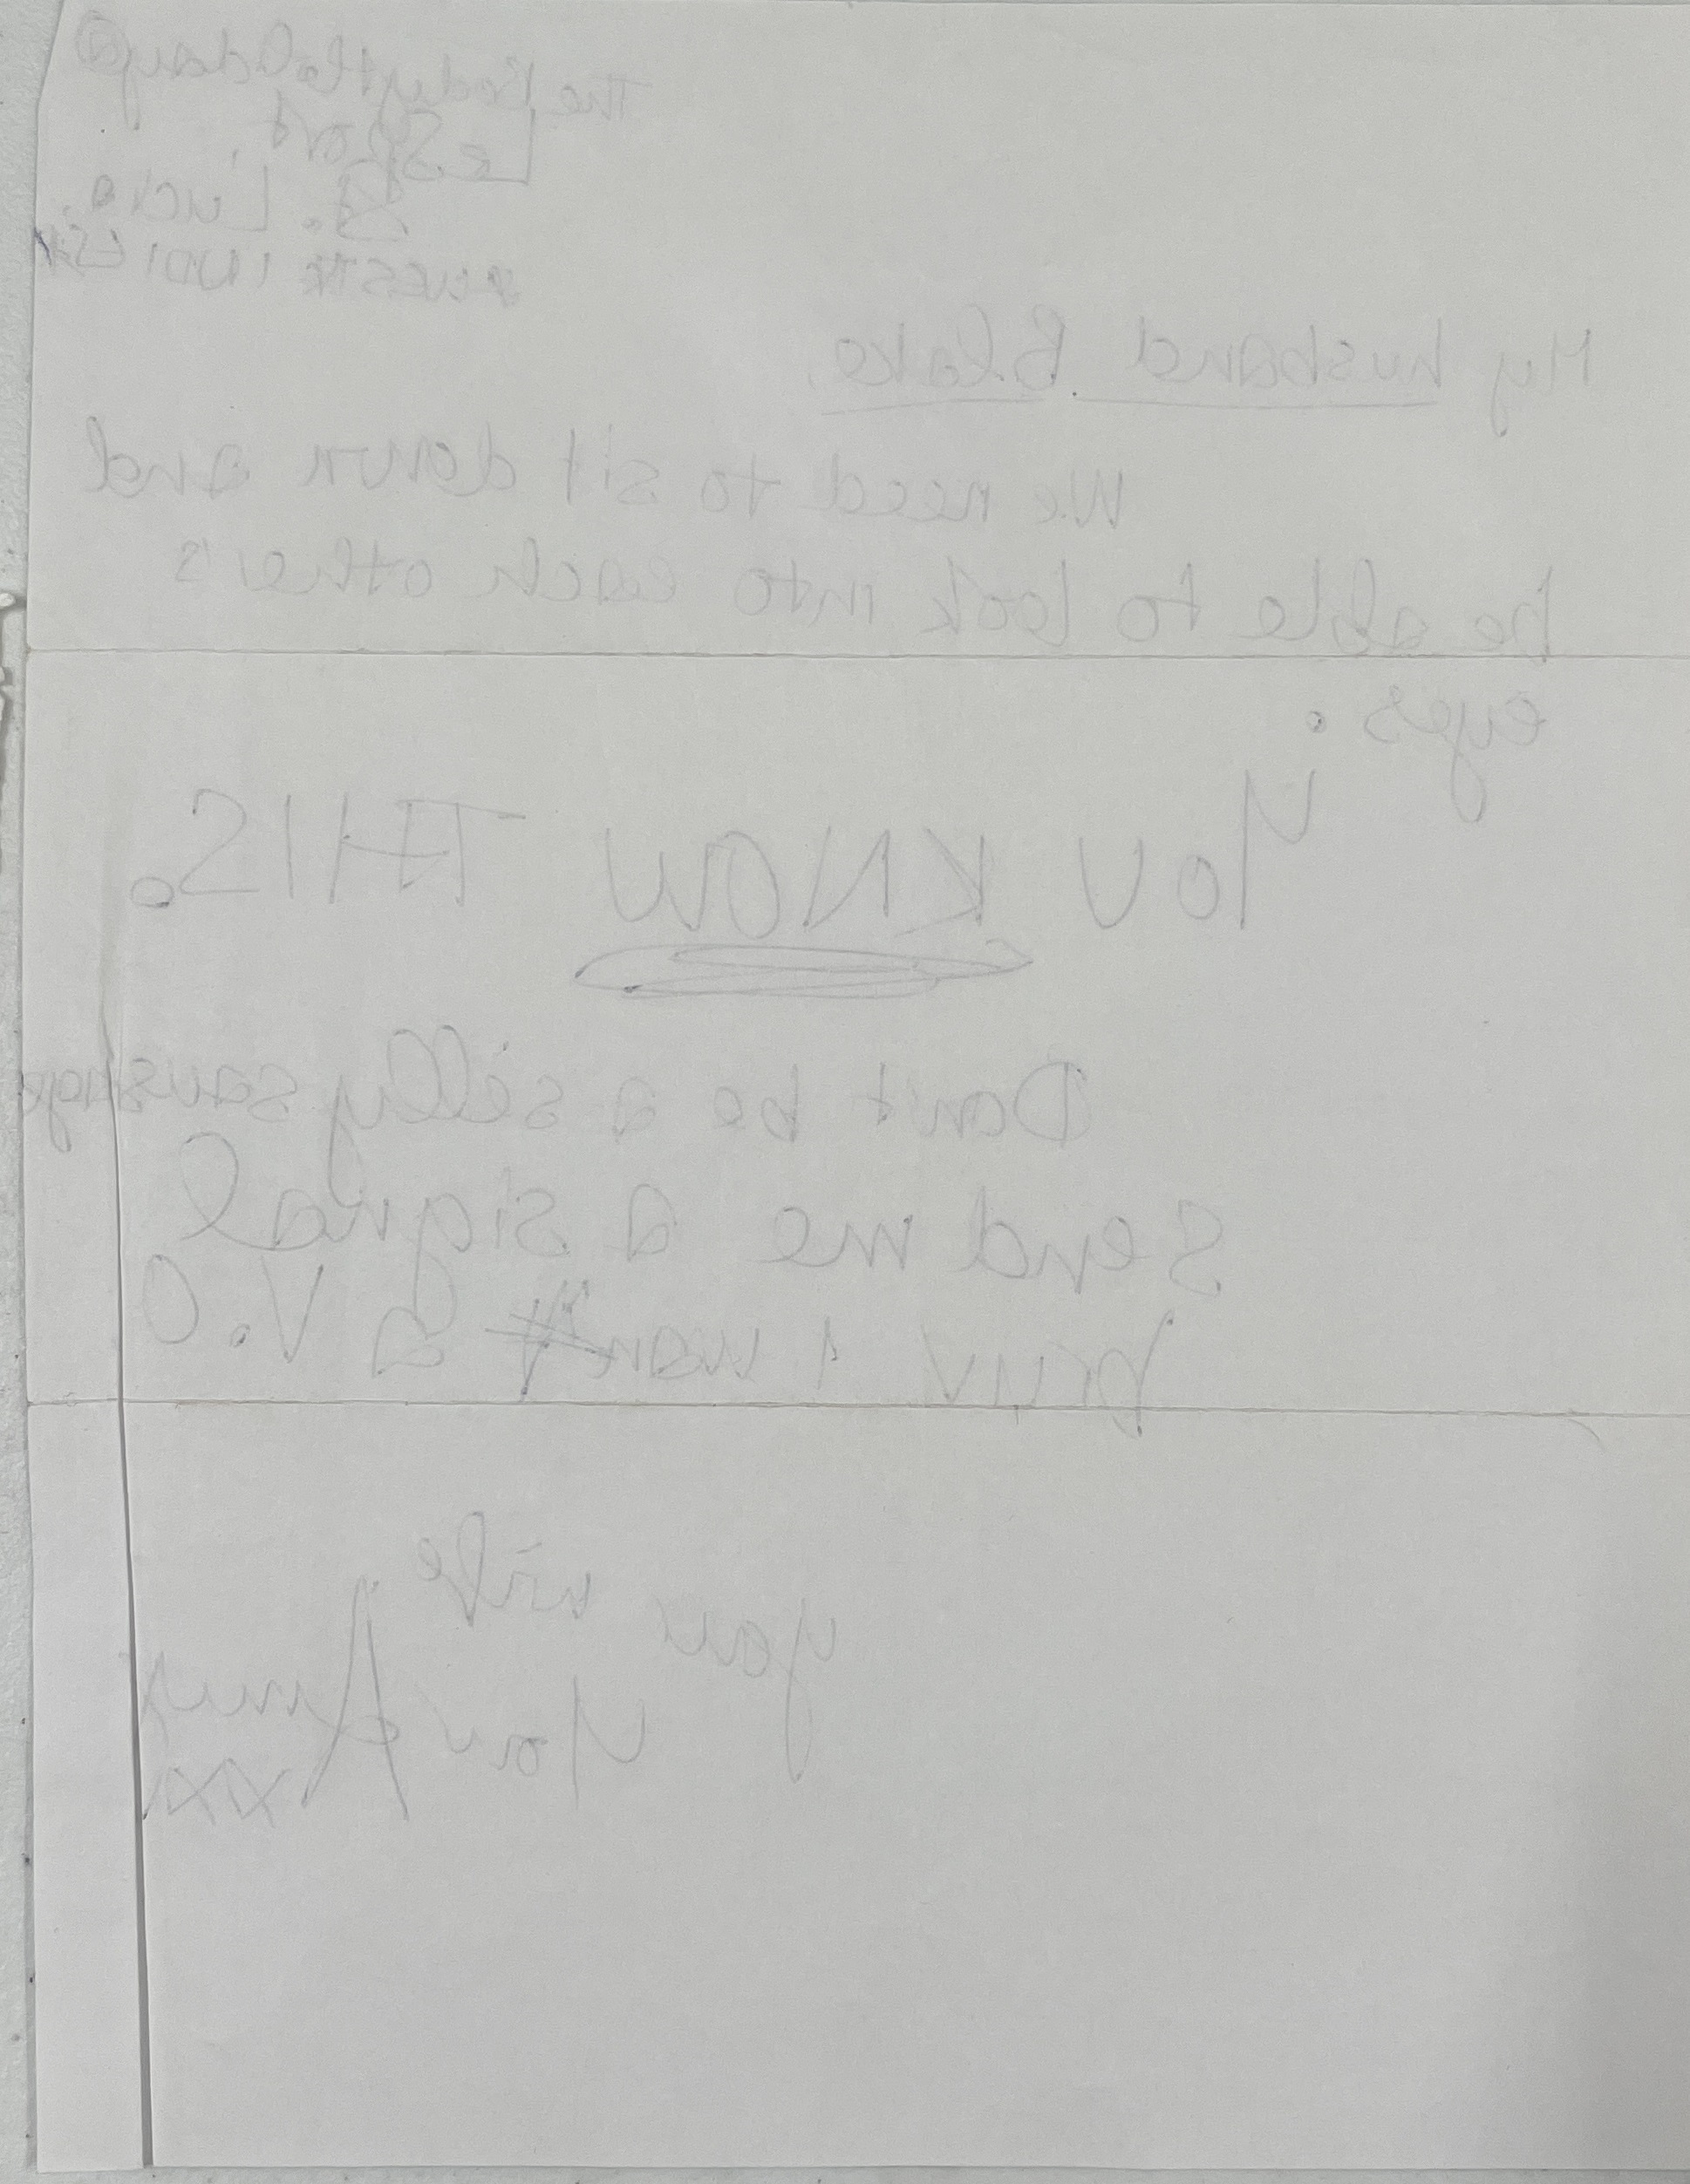 The Body Holiday @
LeSport,
St. Lucia,
WEST INDIES
My husband Blake,
We need to sit down and
be able to look into each other's
eyes.
YOU KNOW THIS.
Don't be a silly sausage
send me a signal
bruv I want a V.O
your wife
Your Amy
xxx